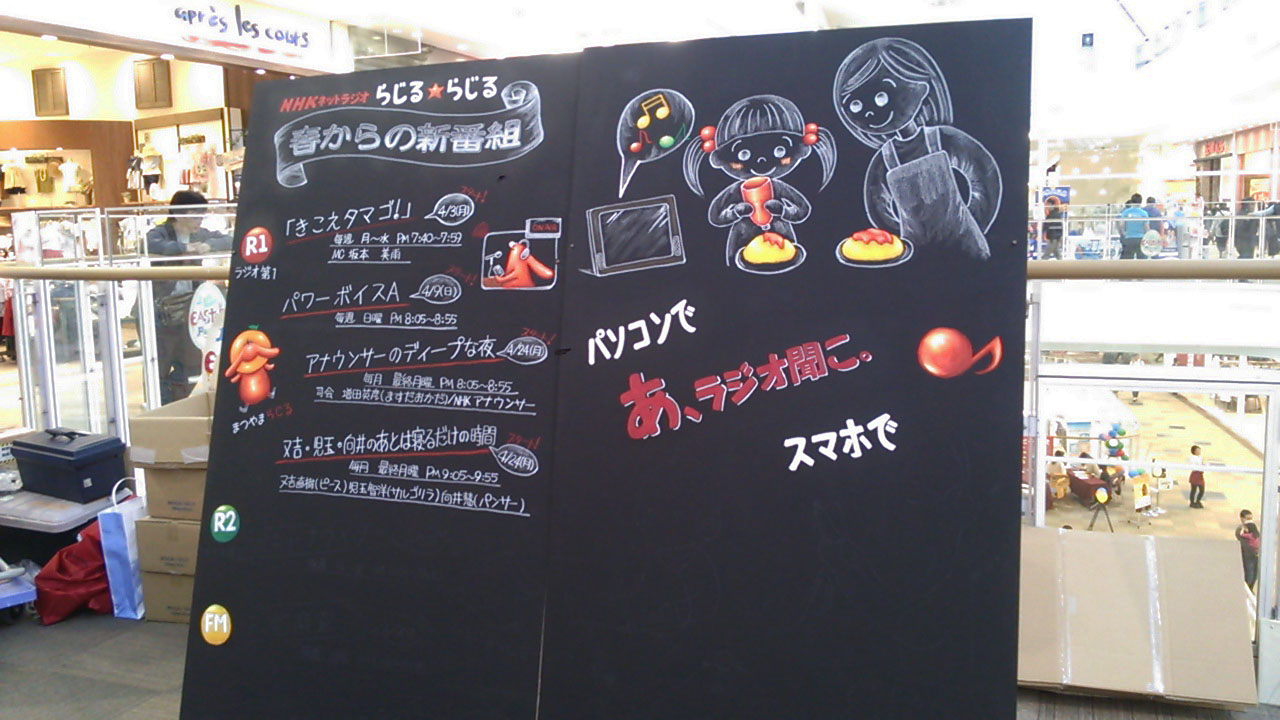 après les cours
NHKネットラジオ らじる★らじる
春からの新番組
R1
ラジオ第1
「きこえタマゴ!」 4/3(月) スタート!
毎週 月～水 PM 7:40～7:59
MC 坂本 美雨
パワーボイスA 4/9(日) スタート!
毎週 日曜 PM 8:05～8:55
アナウンサーのディープな夜 4/24(月) スタート!
毎月 最終月曜 PM 8:05～8:55
司会 増田英彦(ますだおかだ)/NHKアナウンサー
まつやまらじる
又吉・児玉・向井のあとは寝るだけの時間 4/24(月) スタート!
毎月 最終月曜 PM 9:05～9:55
又吉直樹(ピース)児玉智洋(サルゴリラ)向井慧(パンサー)
R2
FM
パソコンで
あ、ラジオ聞こ。
スマホで
EAST